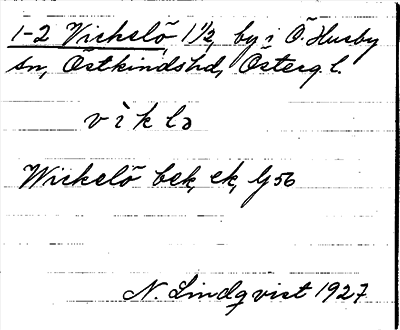 1-2 Vickelö, 1 1/2, by i Ö. Husby
sn, Östkinds hd, Österg. l.
v ì k l ə
Wickelö bek, ek, G 56
N. Lindqvist 1927